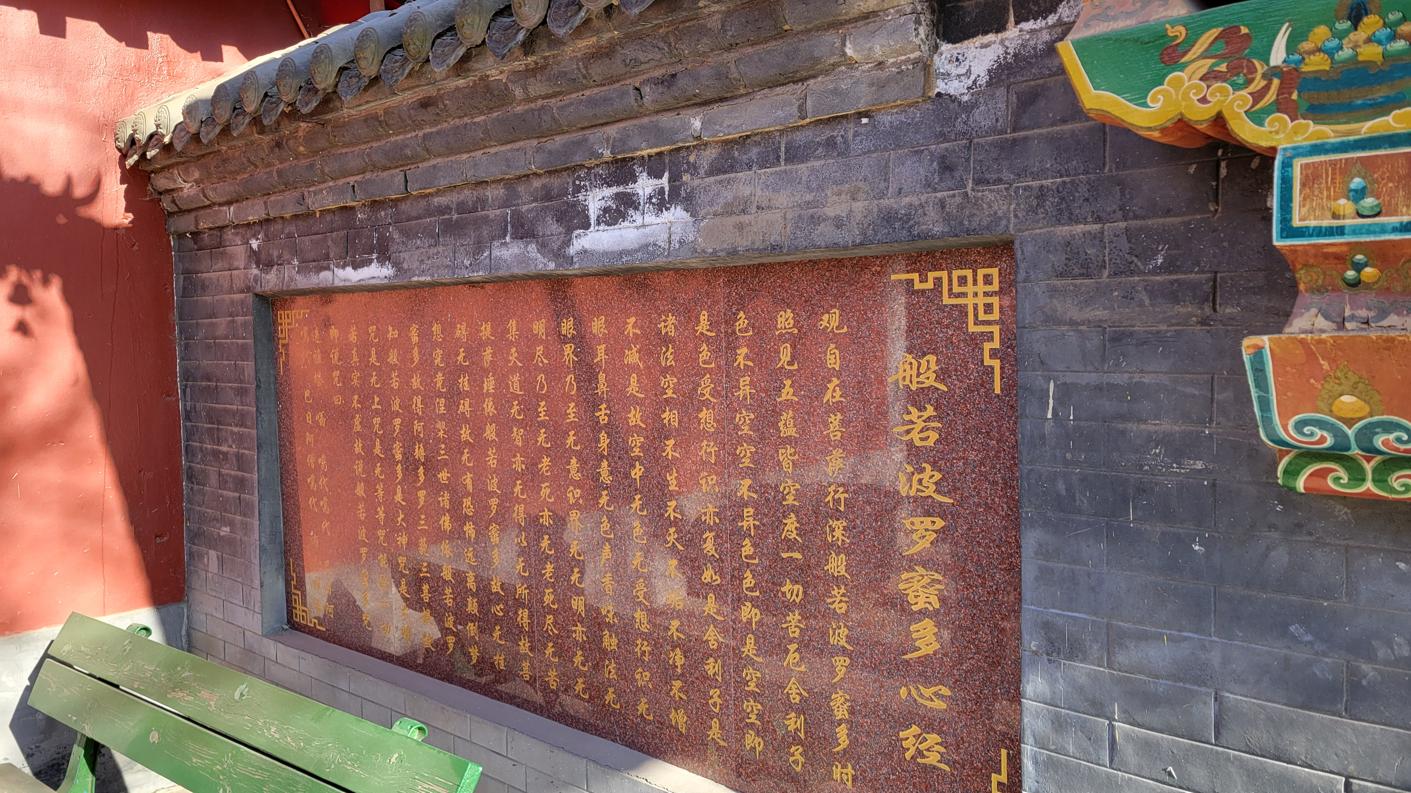 般若波罗蜜多心经
观自在菩萨行深般若波罗蜜多时
照见五蕴皆空度一切苦厄舍利子
色不异空空不异色色即是空空即
是色受想行识亦复如是舍利子是
诸法空相不生不灭不垢不净不增
不减是故空中无色无受想行识无
眼耳鼻舌身意无色声香味触法无
眼界乃至无意识界无无明亦无无
明尽乃至无老死亦无老死尽无苦
集灭道无智亦无得以无所得故菩
提萨埵依般若波罗蜜多故心无挂
碍无挂碍故无有恐怖远离颠倒梦
想究竟涅槃三世诸佛依般若波罗
蜜多故得阿耨多罗三藐三菩提故
知般若波罗蜜多是大神咒是
咒是无上咒是无等等咒
若真实不虚故说般若波罗蜜多咒
即说咒曰